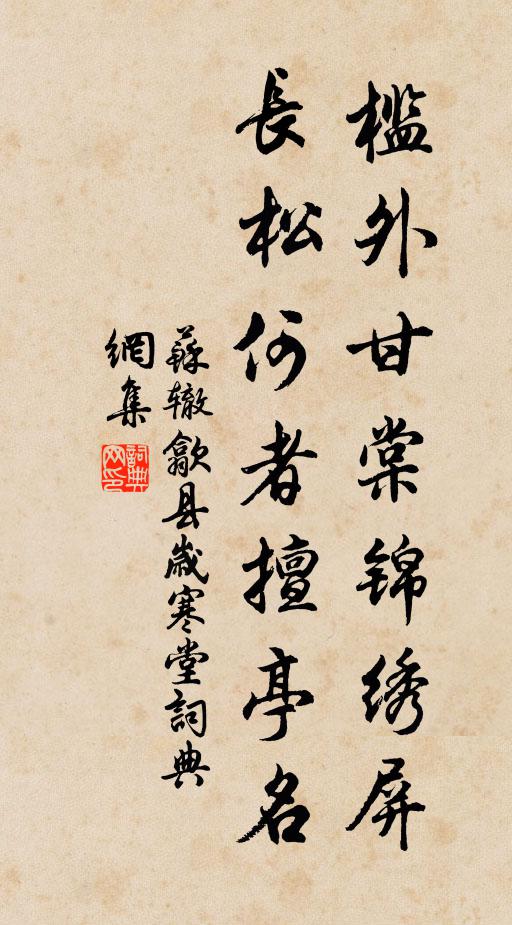 檻外甘棠锦绣屏
長松何者擅亭名
蘇辙歙县歲寒堂詞典
網集
詞典
网印